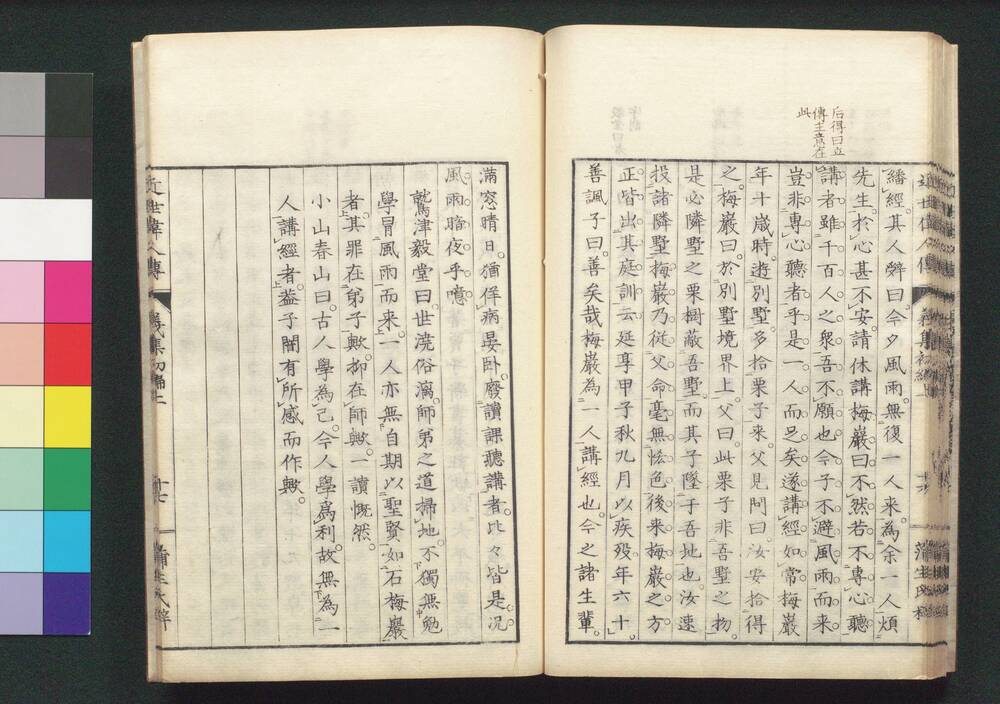 后得曰立
傳主意在
此
繙經其人辭曰今夕風雨無復一人來為余一人煩
先生於心甚不安請休講梅巖曰不然若不專心聽
講者雖千百人之衆吾不願也今子不避風雨而來
豈非專心聽者乎是一人而足矣遂講經如常梅巖
年十歲時遊別墅多拾栗子來父見問曰汝安拾得
之梅巖曰於別墅境界上父曰此栗子非吾墅之物
是必隣墅之栗樹蔽吾墅而其子墜于吾地也汝速
投諸隣墅梅巖乃從父命毫無恡色後来梅巖之方
正皆出其庭訓云延享甲子秋九月以疾歿年六十
善諷子曰善矣哉梅巖為一人講經也今之諸生輩
近世偉人傳
義集初編上
蒲生氏梓
滿窓晴日猶佯病晏臥廢讀課聽講者比々皆是况
風雨暗夜乎噫
鷲津毅堂曰世澆俗漓師弟之道掃地不獨無勉
學冒風雨而来一人亦無自期以聖賢如石梅巖
者其罪在弟子歟抑在師歟一讀慨然
小山春山曰古人學為己今人學爲利故無為一
人講經者葢子闇有所感而作歟
近世偉人傳
義集初編上
蒲生氏梓